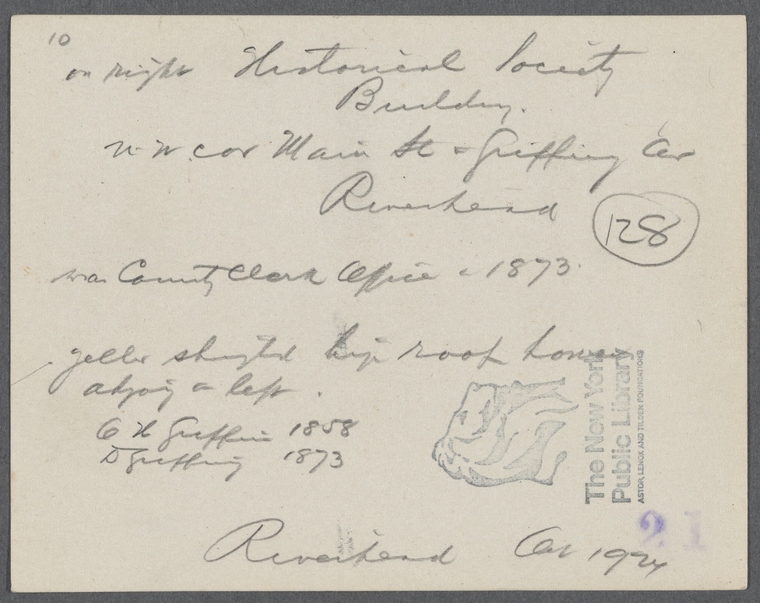 10
on right Historical Society
Building.
N.W. cor Main St & Griffing Av
Riverhead
128
was County Clerk Office - 1873.
yellow shingled hip roof house
adjoing on left.
Griffin 1858
D Griffing 1873
The New York
Public Library
ASTOR, LENOX AND TILDEN FOUNDATIONS
21
Riverhead Oct 1924